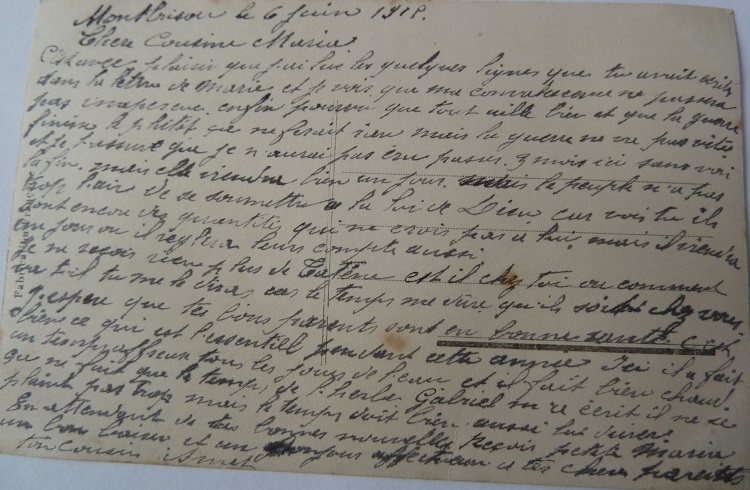 Montbrison le 6 Juin 1918.
Chère Cousine Marie
C'est avec plaisir que j'ai lu les quelques lignes que tu avait écrites
dans la lettre de Marie et je vois que ma convalescence ne passera
pas inaperçue enfin pourvu que tout aille bien et que la guerre
finisse le plutot ça ne ferait rien mais la guerre ne va pas vite
et je t'assure que je n'aurai pas cru passer 3 mois ici sans voir
la fin. mais elle viendra bien un jour. mais le peuple n'a pas
trop l'air de se soumettre a la loi de Dieu car vois tu ils
sont encore des quantités qui ne crois pas a lui, mais il viendra
un jour ou il reglera leurs compte aussi.
Je ne reçois rien plus de est il chez toi ou comment
va t il tu me le diras car le temps me dure qu'ils soient chez vous.
J'espere que tes bons parents sont en bonne santé c'est
bien ce qui est l'essentiel pendant cette année Ici il a fait
un temps affreux tous les jours de l'eau et il fait bien chaud
que ne fait que le temps, de l'herbe Gabriel m'a écrit il ne se
plaint pas trop mais le temps doit bien aussi lui durer
En attendant de tes bonnes nouvelles Reçois petite Marie
un bon baiser et un bonjour affectueux a tes chers parents
ton cousin